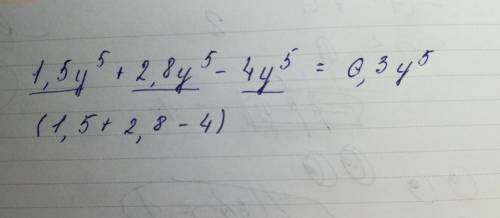 1,5y⁵ + 2,8y⁵ - 4y⁵ = 0,3y⁵
(1,5 + 2,8 - 4)